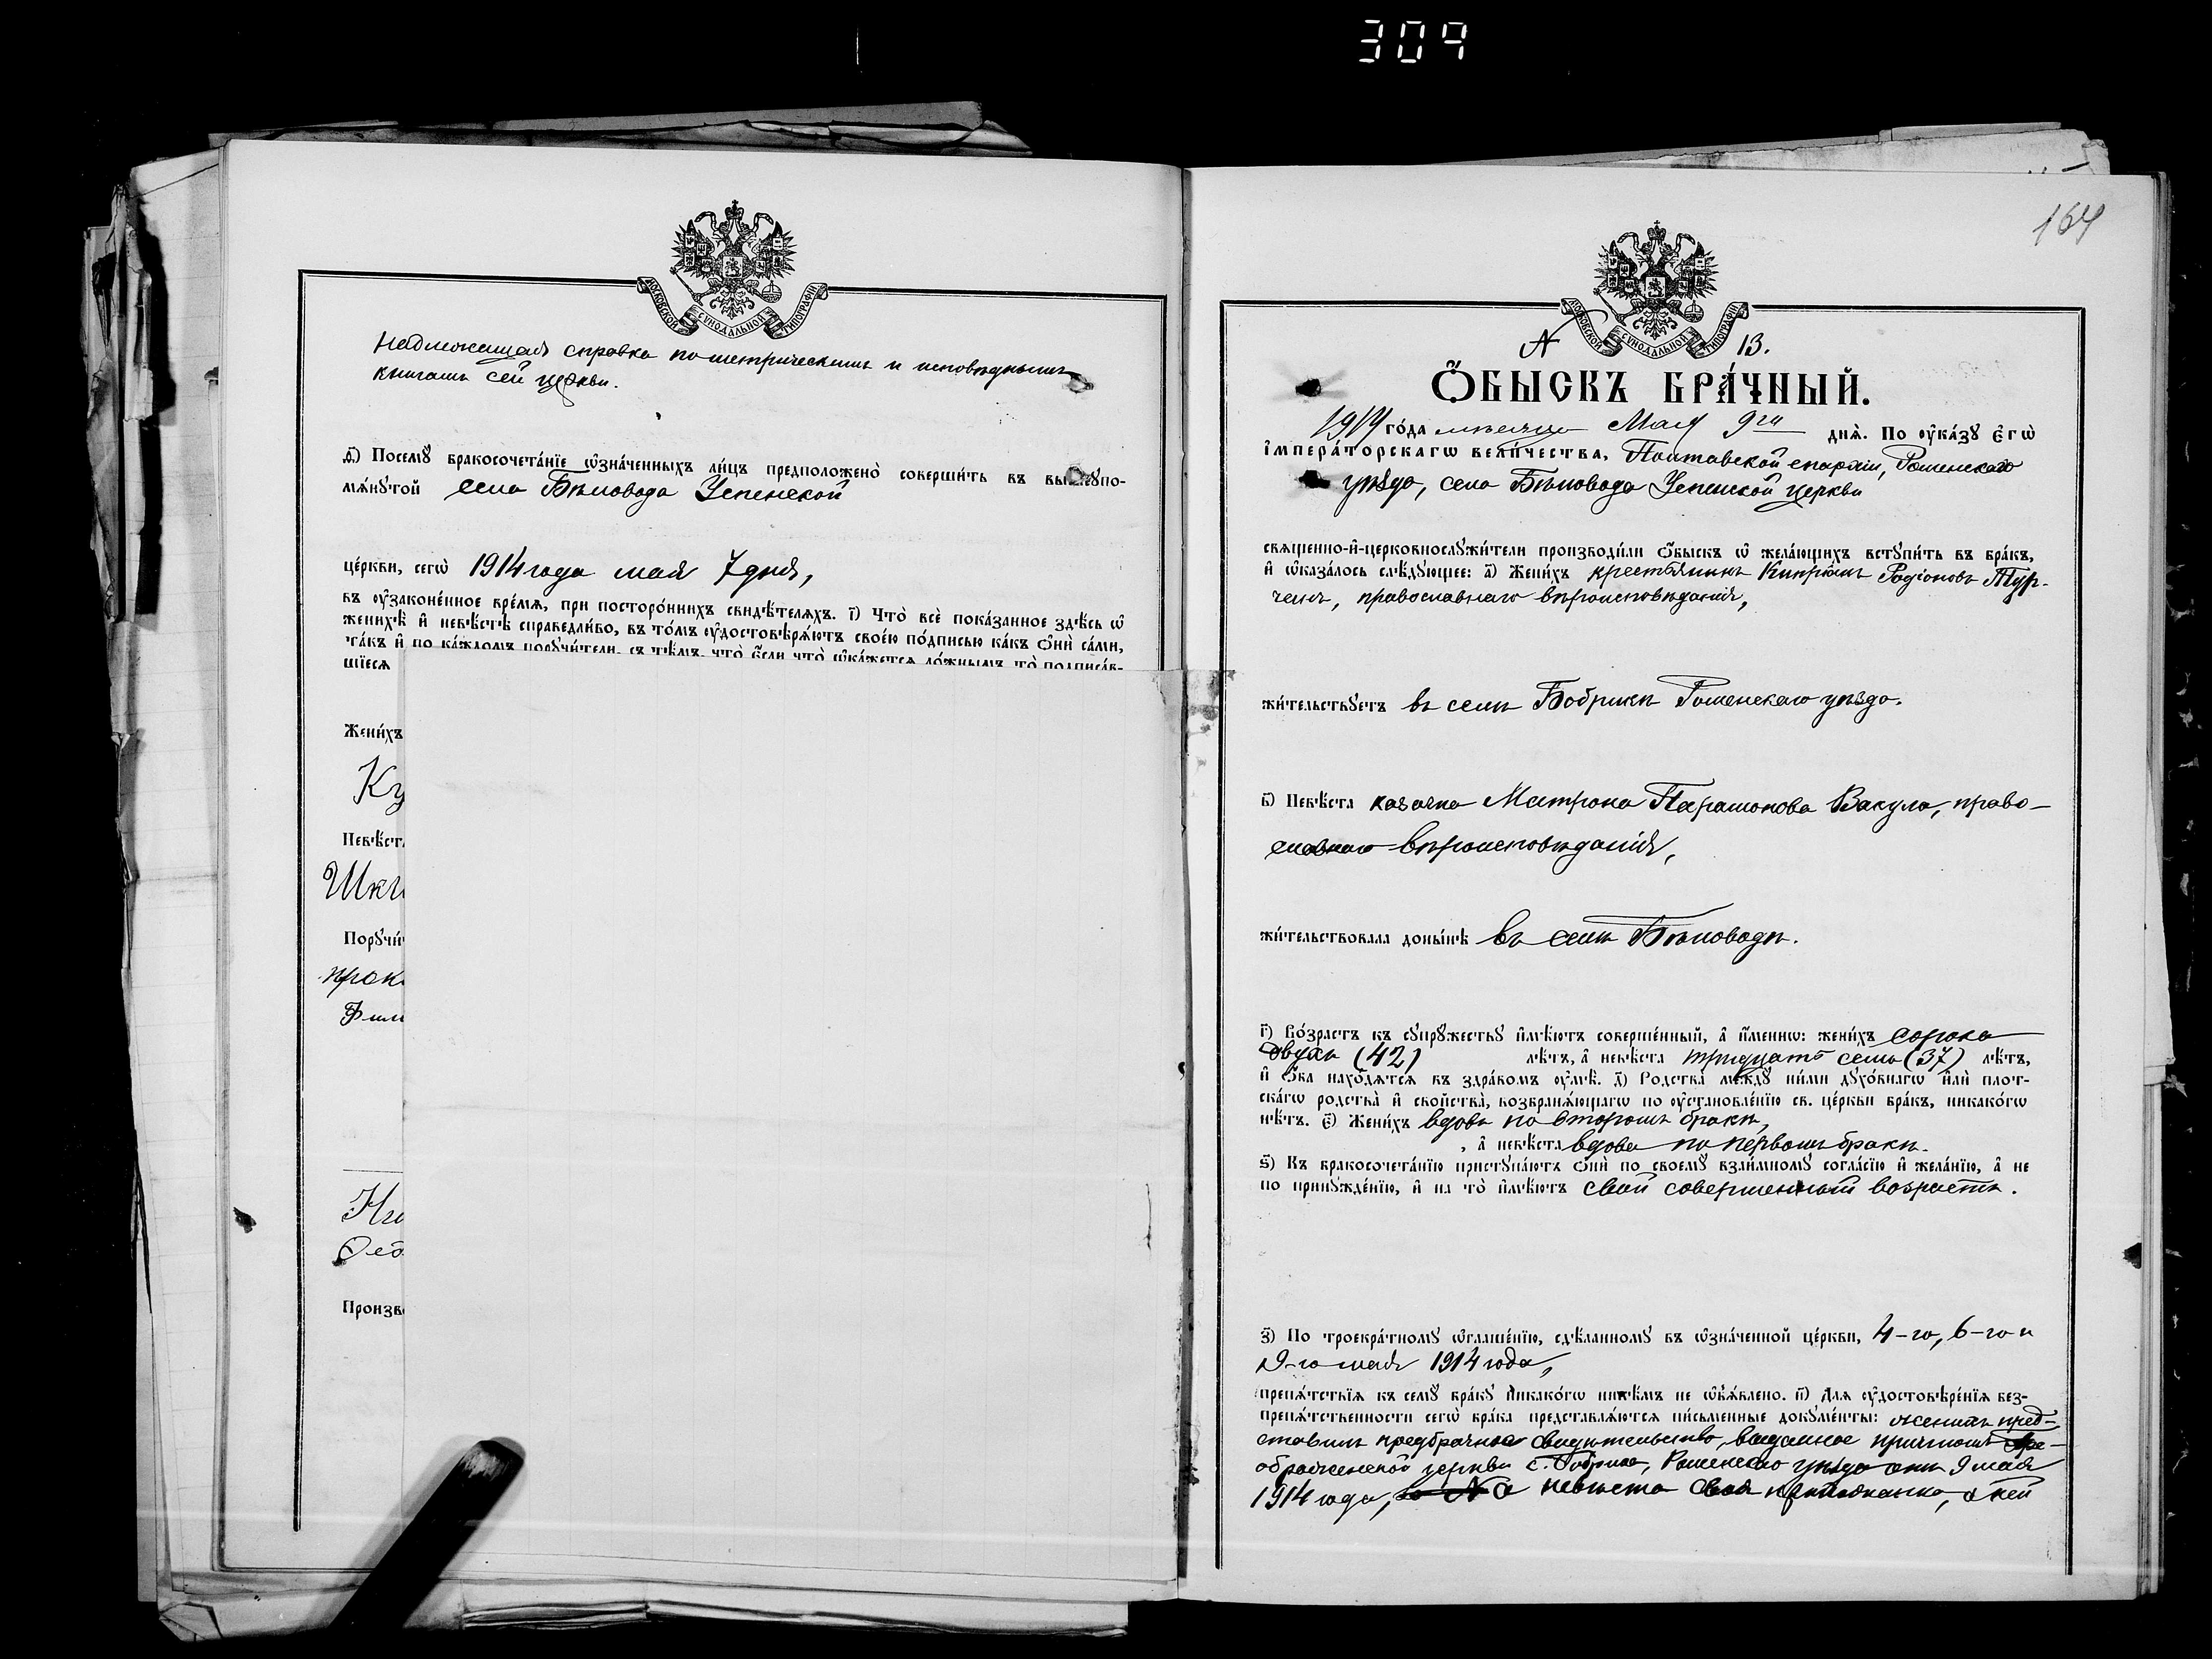 309
МОСКОВСКОЙ СѴНОДАЛЬНОЙ ТИПОГРАФІИ
надлежащая справка по метрическимъ и исповѣднымъ
книгамъ сей церкви.
д҃і) Посемꙋ бракосочета́нїе ѡ҆зна́ченныхъ ли́цъ предположено̀ соверши́ть въ вышеꙋпо-
мѧ́нꙋтой села Бѣловода Успенской
це́ркви, сегѡ̀ 1914 года мая 7 дня,
въ ᲂу҆законе́нное вре́мѧ, при посторо́ннихъ свидѣ́телѧхъ. і҃) Что̀ всѐ пока́занное здѣ́сь ѡ҆
женихѣ̀ и҆ невѣ́стѣ справедли́во, въ то́мъ ᲂу҆достовѣрѧ́ютъ свое́ю по́дписью ка́къ ѻ҆нѝ са́ми,
та́къ и҆ по ка́ждомъ порꙋчи́тели, съ тѣ́мъ, что̀ є҆́сли что̀ ѡ҆ка́жетсѧ ло́жнымъ, то̀ подписа́в-
шїесѧ
Жени́хъ
Ку
Невѣст
Шкл
Порꙋчи
прок
Фили
Ни
Ѳед
Произв
164
МОСКОВСКОЙ СѴНОДАЛЬНОЙ ТИПОГРАФІИ
№ 13.
Ѻ҆́БЫСКЪ БРА́ЧНЫЙ.
1914 го́да мѣсяца Мая 9го днѧ̀. По ᲂу҆ка́зꙋ Є҆гѡ̀
І҆мпера́торскагѡ вели́чества, Полтавской епархіи, Роменскаго
уѣзда, села Бѣловода Успенской церкви
свѧщенно-и҆-церковнослꙋжи́тели производи́ли ѻ҆́быскъ ѡ҆ жела́ющихъ встꙋпи́ть въ бра́къ,
и҆ ѡ҆каза́лось слѣ́дꙋющее: а҃) Жени́хъ крестьянинъ Кипріанъ Родіоновъ Тур-
ченъ, православнаго вѣроисповѣданія,
жи́тельствꙋетъ въ селѣ Бобрикѣ Роменскаго уѣзда.
в҃) Невѣ́ста казачка Матрона Парамонова Вакула, право-
славнаго вѣроисповѣданія,
жи́тельствовала доны́нѣ въ селѣ Бѣловодѣ.
г҃) Во́зрастъ къ сꙋпрꙋ́жествꙋ и҆мѣ́ютъ соверше́нный, а҆ и҆́менно: жени́хъ сорока
двухъ (42) лѣ́тъ, а҆ невѣ́ста тридцать семь (37) лѣ́тъ,
и҆ ѻ҆́ба нахо́дѧтсѧ въ здра́вомъ ᲂу҆мѣ̀. д҃) Родства̀ междꙋ ни́ми дꙋхо́внагѡ и҆лѝ плот-
ска́гѡ родства̀ и҆ свойства̀, возбранѧ́ющагѡ по ᲂу҆становле́нїю св. це́ркви бра́къ, никако́гѡ
нѣ́тъ. є҃) Жени́хъ вдовъ по второмъ бракѣ,
, а҆ невѣ́ста вдова по первомъ бракѣ.
ѕ҃) Къ бракосочета́нїю пристꙋпа́ютъ ѻ҆нѝ по своемꙋ̀ взаи́мномꙋ согла́сїю и҆ жела́нїю, а҆ не
по принꙋжде́нїю, и҆ на то̀ и҆мѣ́ютъ свой совершенный возрастъ.
з҃) По троекра́тномꙋ ѡ҆глаше́нїю, сдѣ́ланномꙋ въ ѡ҆зна́ченной це́ркви, 4-го, 6-го и
9-го мая 1914 года,
препѧ́тствїѧ къ семꙋ̀ бра́кꙋ никако́гѡ никѣ́мъ не ѡ҆б̾ѧ́влено. и҃) Для ᲂу҆достовѣре́нїѧ без-
препѧ́тственности сегѡ̀ бра́ка представлѧ́ютсѧ пи́сьменные докꙋме́нты: женихъ пред-
ставилъ предбрачное свидѣтельство, выданное причтомъ Пре-
ображенской церкви с. Бобрика, Роменскаго уѣзда отъ 9 мая
1914 года, за № а невѣста своя прихожанка, о ней